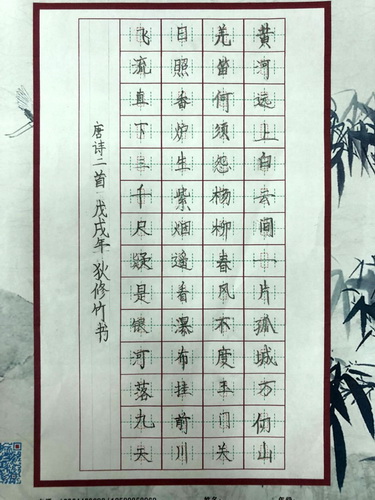 黄河远上白云间一片孤城万仞山
羌笛何须怨杨柳春风不度玉门关
日照香炉生紫烟遥看瀑布挂前川
飞流直下三千尺疑是银河落九天
唐诗二首 戊戌年 狄修竹书